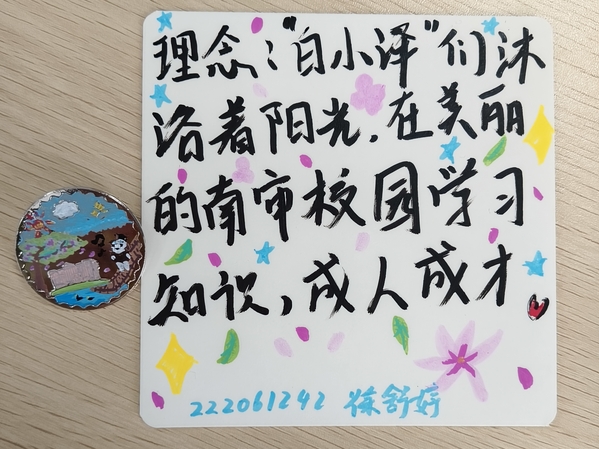 理念："白小泽"们沐
浴着阳光,在美丽
的南审校园学习
知识,成人成才
222061242 徐舒婷